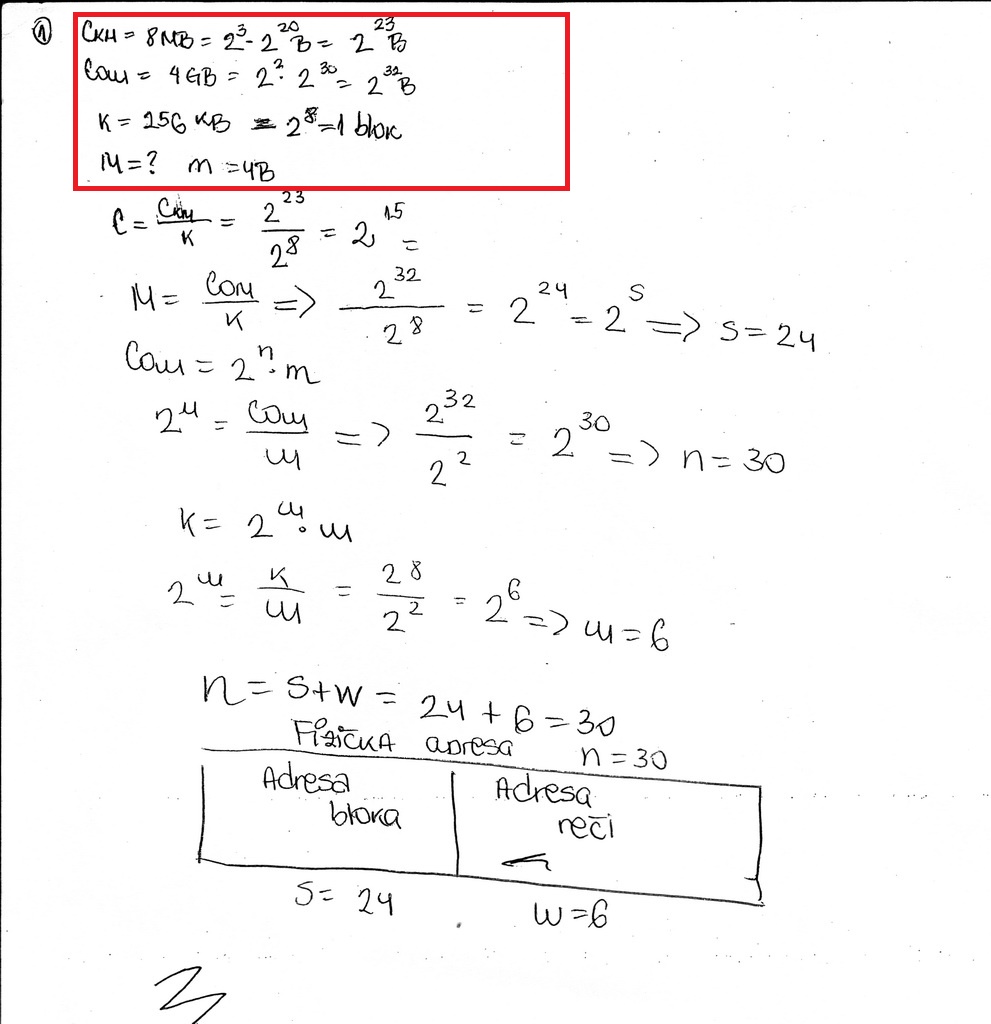 1
Cкн = 8MB = 2^3 · 2^20 B = 2^23 B
Com = 4GB = 2^2 · 2^30 = 2^32 B
K = 256 KB = 2^8 = 1 blok
M = ? m = 4B
C = Cкн/K = 2^23/2^8 = 2^15 =
M = Com/K => 2^32/2^8 = 2^24 = 2^S => S = 24
Com = 2^n · m
2^n = Com/m => 2^32/2^2 = 2^30 => n = 30
K = 2^w · m
2^w = K/m = 2^8/2^2 = 2^6 => w = 6
n = S + W = 24 + 6 = 30
FiZIČKA adresa n = 30
Adresa bloka
Adresa reči
S = 24
W = 6